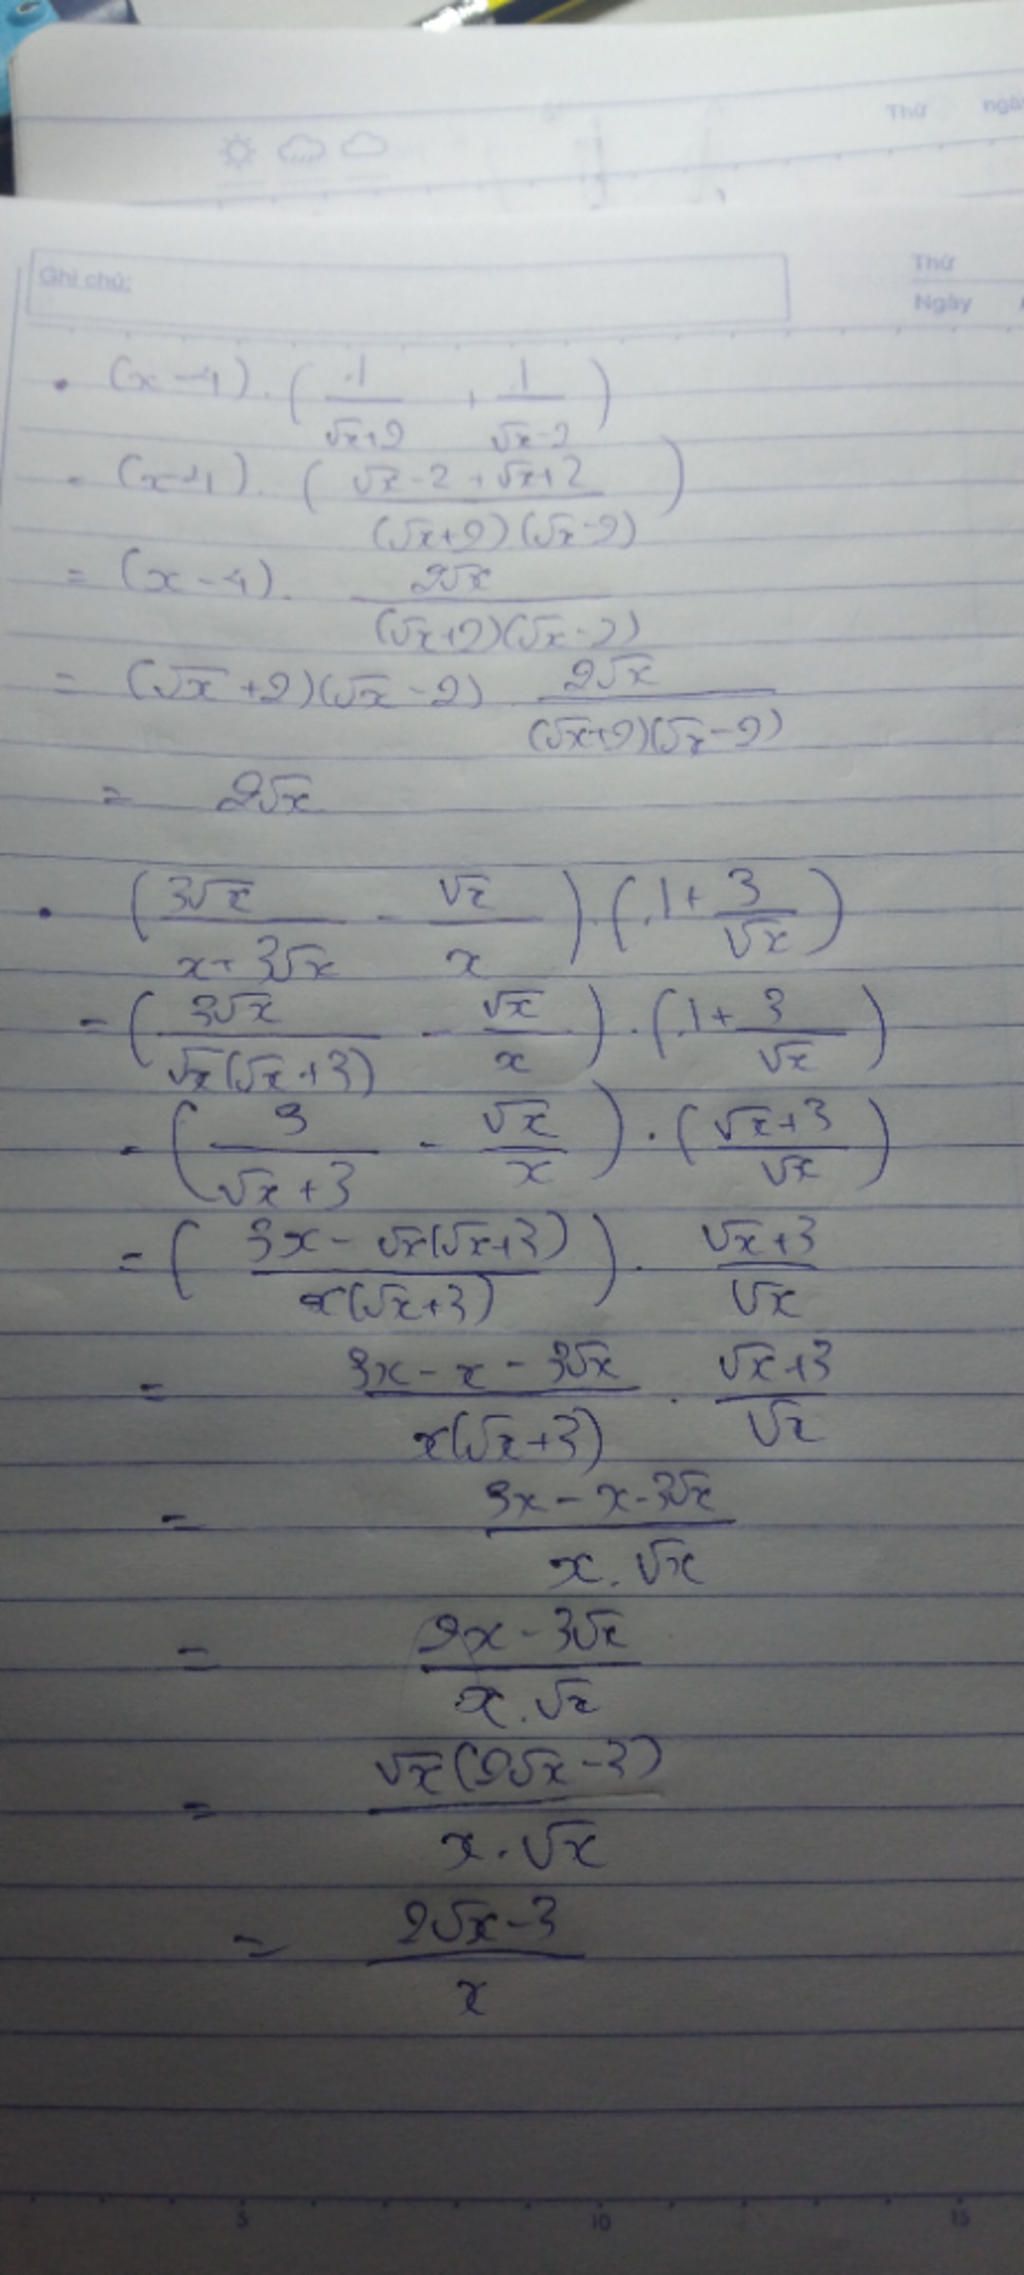 Thứ ngày
Ghi chú: Thứ
Ngày
• (x-4).(1/(√x+2) + 1/(√x-2))
= (x-4).((√x-2+√x+2)/((√x+2)(√x-2)))
= (x-4). 2√x/((√x+2)(√x-2))
= (√x+2)(√x-2) 2√x/((√x+2)(√x-2))
= 2√x
• (3√x/(x+3√x) - √x/x).(1+3/√x)
= (3√x/(√x(√x+3)) - √x/x).(1+3/√x)
= (3/(√x+3) - √x/x).((√x+3)/√x)
= ((3x-√x(√x+3))/(x(√x+3))).(√x+3)/√x
= (3x-x-3√x)/(x(√x+3)).(√x+3)/√x
= (3x-x-3√x)/(x.√x)
= (2x-3√x)/(x.√x)
= √x(2√x-3)/(x.√x)
= (2√x-3)/x
5 10 15